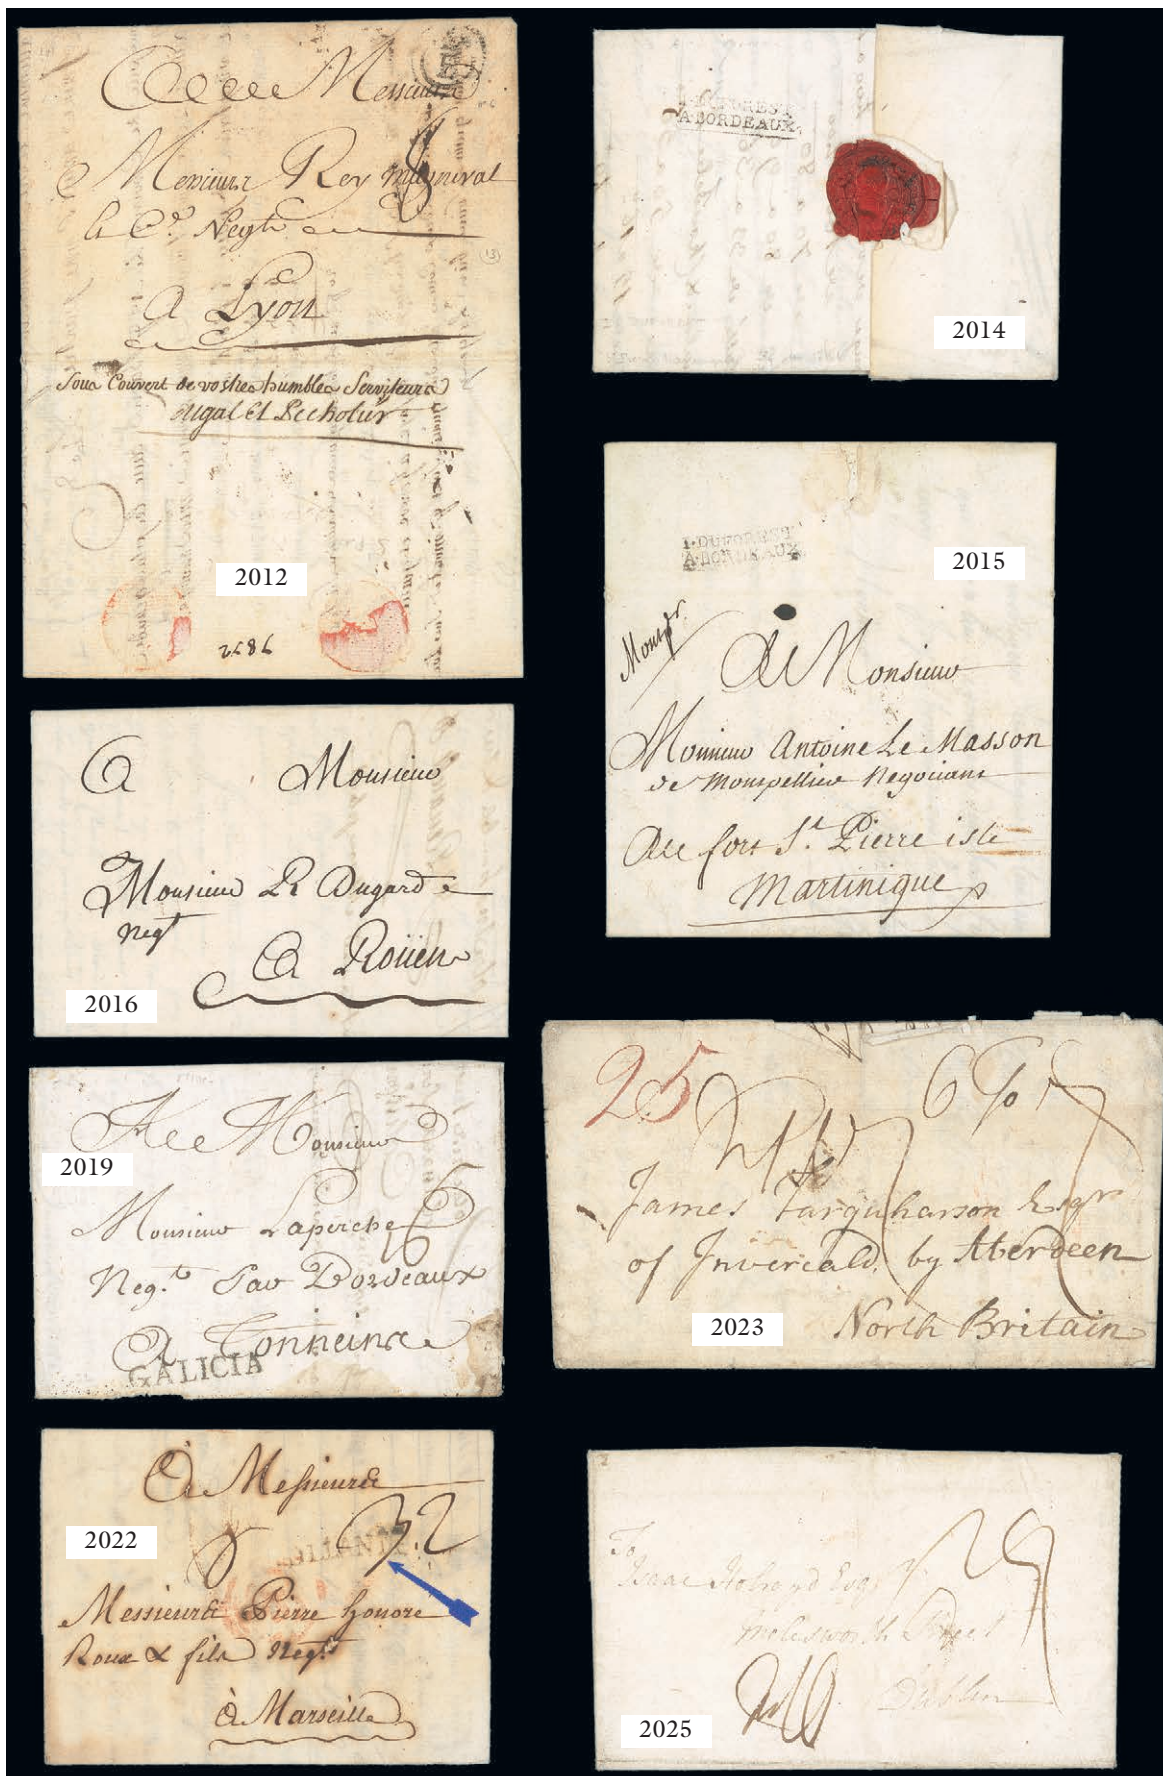 Messieurs
Messieurs Rey Magneval
& C.e Negts
A Lyon
Sous Couvert de vostres humbles Serviteurs
2012
A BORDEAUX
2014
I.DUFOREST
A.BORDEAUX
2015
A Monsieur
Monsieur Antoine Le Masson
de Monspellier Negociant
Au fort St. Pierre isle
Martinique
A Monsieur
Monsieur R Dugard
Negt
A Roüen
2016
A Monsieur
2019
Monsieur Laperche
Neg.t Par Bordeaux
A Tonneins
GALICIA
25
James Farquharson Esqr
of Invercald, by Aberdeen
2023
North Britain
à Messieurs
2022
32
Messieurs Pierre honore
Roux & fils Negts
à Marseille
To
Isaac Esqr
Molesworth Street
Dublin
2025